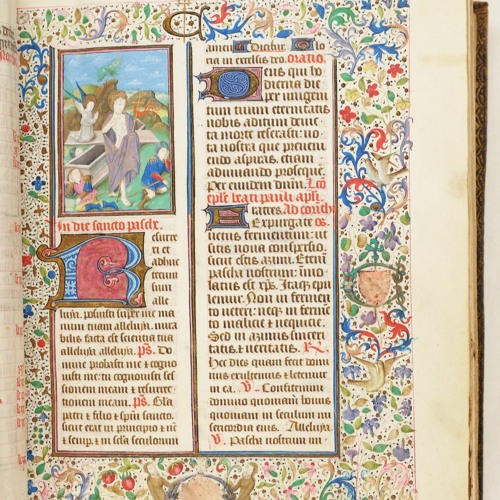 In die sancto pasche.
Resurre
xi et
adhuc
tecum
sum
alle
luya. posuisti super me ma
num tuam alleluya. mira
bilis facta est scientia tua
alleluya alleluya. ps. Do
mine probasti me et cogno
uisti me: tu cognouisti ses
sionem meam et resurrec
tionem meam. ps. Gla
patri et filio et spiritui sancto.
sicut erat in principio et nunc
et semper. et in secula seculorum
amen. Dicitur Glo
ria in excelsis deo. oratio
Deus qui ho
dierna die
per unigeni
tum tuum eternitatis
nobis aditum deuic
ta morte reserasti: uo
ta nostra que preueni
endo aspiras, etiam
adiuuando prosequere.
Per eundem dnm. Lco
epistole beati pauli apsi.
Fratres. Ad corinth
Expurgate os.
uetus fermentum: ut
sitis noua conspersio
sicut estis azimi. Etenim
Pascha nostrum: immo
latus est xps. Itaque epu
lemur. Non in fermen
to ueteri: neque in fermen
to malicie et nequicie:
Sed in azimis sincerita
tis et ueritatis. R.
Hec dies quam fecit domi
nus exultemus et letemur
in ea. V. Confitemini
domino quoniam bonus
quoniam in seculum mi
sericordia eius. Alleluya
V. Pascha nostrum im